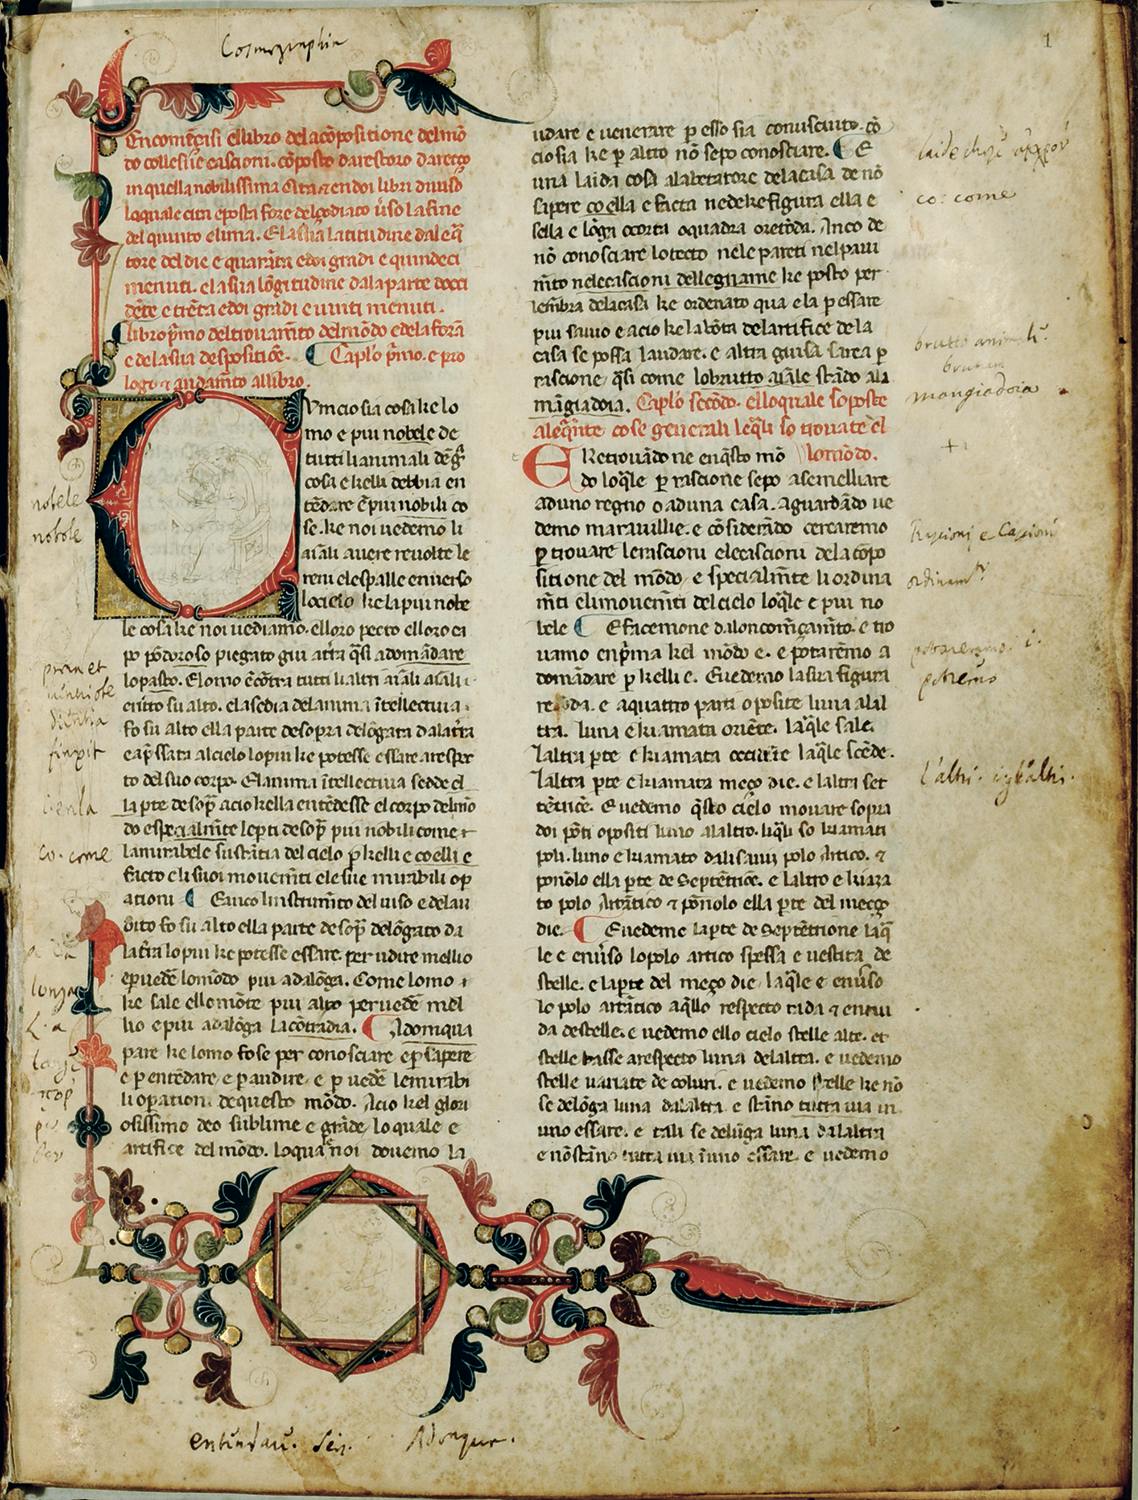 Cosmographia
1
Encomēçasi ellibro delacōpositione delmō
do collesue cascioni. cōposto daristoro dareçço
inquellanobilissima cita & endoi libri diuiso
loquale cita e posta fore delçodiaco u̓so la fine
del quinto clima. E la sua latitudine
tore del die e quarāta e doi gradi e quindeci
menuti. e la sua lōgitudine dala parte docci
dēte e trēta e doi gradi e uinti menuti.
libro p̄mo del trouamīto delmōdo e dela forā
e dela sua despositiōe. Caplo p̄mo. e pro
logo & andamīto allibro.
Cvm cio sia cosa ke lo
mo e piu nobele de
tutti li animali
cosa e kelli debbia en
tēdare e piu nobili co
se. ke noi uedemo li
aīali auere reuolte le
reni e le spalle enuerso
lo cielo ke la piu nobe
le cosa ke noi uediamo. elloro pecto elloro ca
po pōdoroso piegato giu a tr̄a q̄si adomādare
lo pasto. E lomo ēcōtra tutti li altri aīali
ritto su alto. e la sedia del anima ītellectiua
fo su alto ella parte de sopra delōgata da la tr̄a
e ap̄ssata al cielo lo piu ke potesse essare a respec
to del suo corpo. E lanima ītellectiua sedde el
la p̄te de sop̄ acio kella entēdesse el corpo del mōdo
do e specialm̄te le p̄ti de sop̄ piu nobili come
la mirabele sustātia del cielo p̄ kelli e co elli e
facto e li suoi mouem̄ti e le sue mirabili op̄
ationi. E anco lo instrum̄to del uiso e del au
dito fo su alto ella parte de sop̄ delōgato da
la tr̄a lo piu ke potesse essare. per udire mellio
e p̄ uedē lo mōdo piu a dalōga. Come lomo
ke sale ello mōte piu alto per uedē mel
lio e piu a dalōga la cōtradia. Adomqua
pare ke lomo fose per conosciare e p̄ sapere
e p̄ entēdare e p̄ audire e p̄ uedē le mirabi
li op̄ationi de questo mōdo. Acio kel glori
osissimo deo sublime e grāde lo quale e
artifice del mōdo. lo qua noi douemo la
udare e uenerare p̄ esso sia conusciuto. cō
cio sia ke p̄ altro nō se po conosciare. E
una laida cosa a labetatore de la casa de nō
sapere co ella e facta ne de ke figura ella e
sella e lōga o corta o quadra o retōda. Anco de
nō conosciare lo tecto ne le pareti nel paui
m̄to ne le cascioni del legname ke posto per
le mēbra de la casa ke ordenato qua e la p̄ essare
piu sauio e acio ke la bōta del artifice de la
casa se possa laudare. e altra guisa sarea p̄
rascione q̄si come lo brutto aīale stādo a la
māgiadoia. Caplo secōdo. ello quale so poste
aleq̄nte cose generali le q̄li so trouate el
lo mōdo.
E Retrouādo ne en q̄sto mō
do lo q̄le p̄ rascione se po asemelliare
ad uno regno o ad una casa. aguardādo ue
demo marauillie. e cōsiderādo cercaremo
p̄ trouare le rascioni e le cascioni de la cōpo
sitione del mōdo e specialm̄te li ordina
m̄ti e li mouem̄ti del cielo lo q̄le e piu no
bele E facemone dal oncomēçam̄to. e tro
uamo en p̄ma kel mōdo e. e potaremo a
domādare p̄ kelli e. E uedemo la sua figura
retōda. e a quattro parti oposite luna a lal
tra. luna e kiamata oriēte. la q̄le sale.
laltra p̄te e kiamata occidēte la q̄le scēde.
laltra p̄te e kiamata meço die. e laltra set
tētriōe. E uedemo q̄sto cielo mouare sopra
doi pōti opositi luno a laltro. li q̄li so kiamati
poli. luno e kiamato da li saui polo Artico. &
ponolo ella p̄te de Septētriōe. e laltro e kiama
to polo Artātico & pōnolo ella p̄te del meço
die. E uedemo la p̄te de Septētrione la q̄
le e enu̓so lo polo artico spessa e uestita de
stelle. e la p̄te del meço die. la q̄le e enu̓so
lo polo artātico a q̄llo respecto rada & ennu
da de stelle. e uedemo ello cielo stelle alte. et
stelle basse a respecto luna de laltra. e uedemo
stelle uariate de coluri. e uedemo stelle ke nō
se delōga luna da laltra e stāno tutta uia in
uno essare. e tali se delūga luna da laltra
e nō stāno tutta uia ī uno essare. e uedemo
nobele
nobole
co. come
co: come
mangiadoia
Rascioni e Casioni
potremo
l'altri.
Adonque.